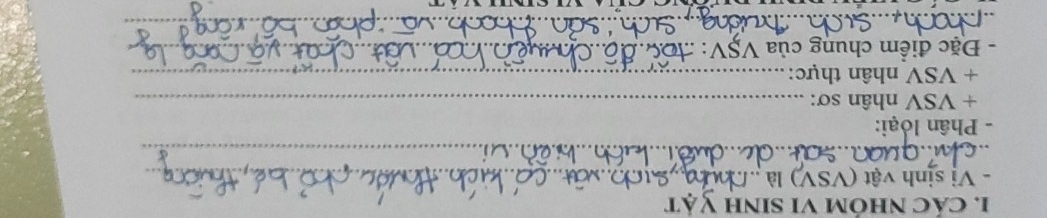 I. CÁC NHÓM VI SINH VẬT
- Vi sinh vật (VSV) là ...những sinh vật có kích thước nhỏ bé, thường...
...chỉ quan sát được dưới kính hiển vi...
- Phân loại:
+ VSV nhân sơ: ...
+ VSV nhân thực: ...
- Đặc điểm chung của VSV: tốc độ chuyển hoá vật chất và năng lg
...nhanh, sinh trưởng, sinh sản nhanh và phân bố rộng...